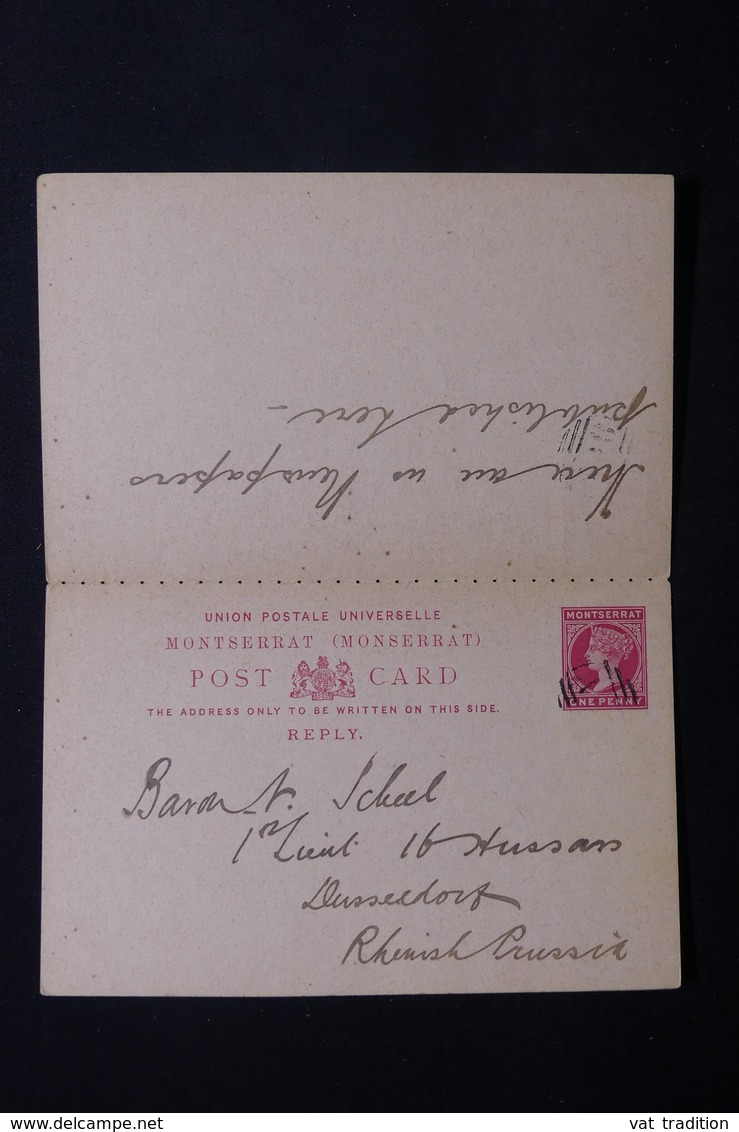 There are no Newspapers
published here –
UNION POSTALE UNIVERSELLE
MONTSERRAT (MONSERRAT)
POST CARD
THE ADDRESS ONLY TO BE WRITTEN ON THIS SIDE.
REPLY.
MONTSERRAT
ONE PENNY
Baron v. Scheel
1st Lieut 16 Hussars
Dusseldorf
Rhenish Prussia
vat tradition